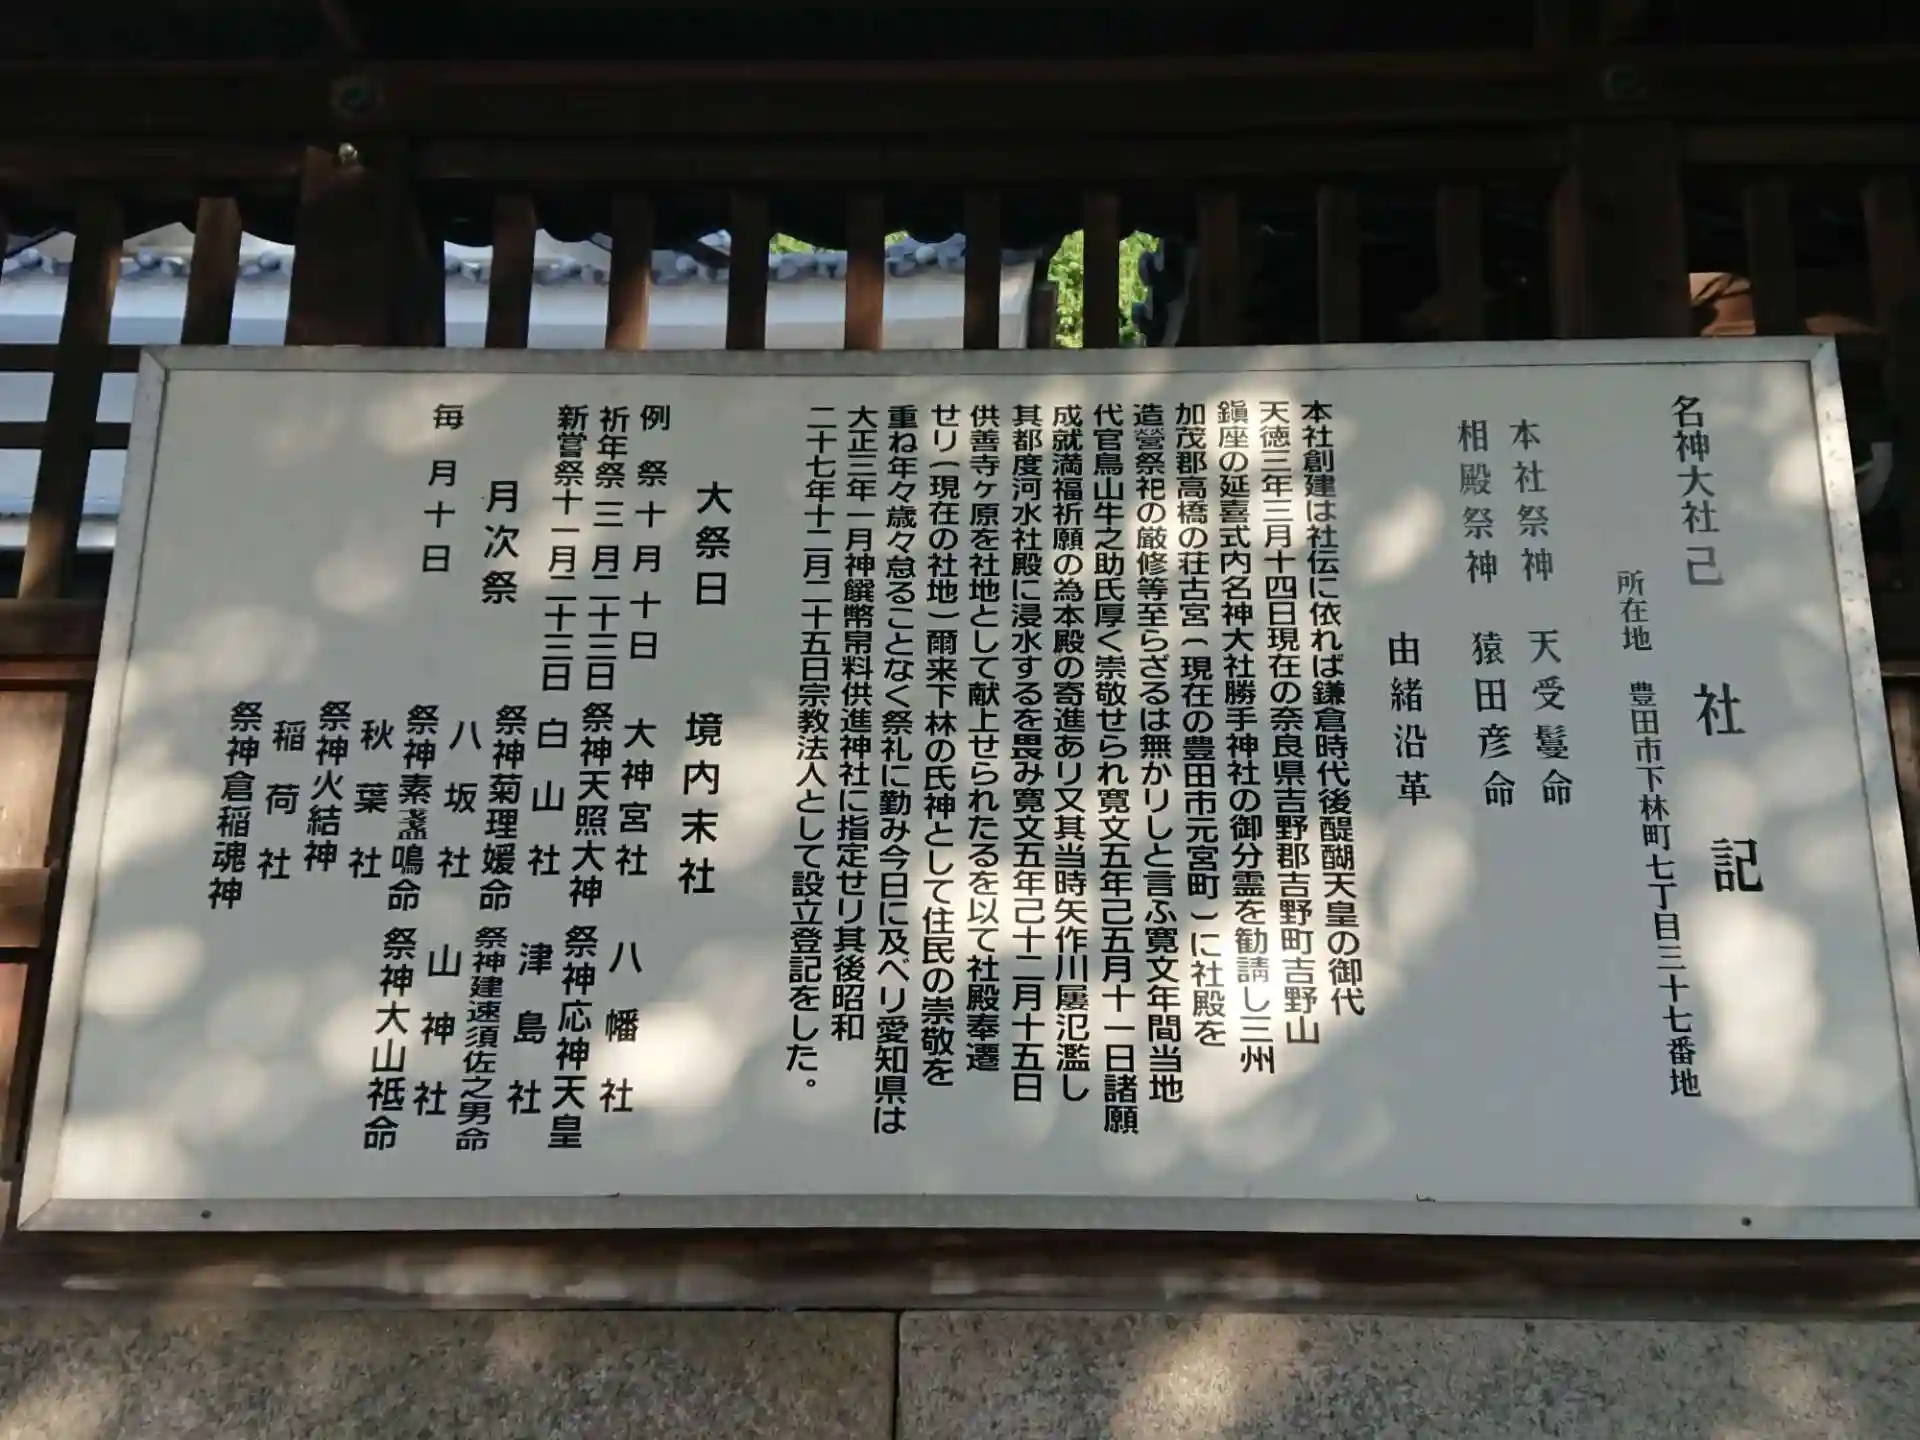 名神大社己
社記
所在地 豊田市下林町七丁目三十七番地
本社祭神 天受鬘命
相殿祭神 猿田彦命
由緒沿革
本社創建は社伝に依れば鎌倉時代後醍醐天皇の御代
天徳三年三月十四日現在の奈良県吉野郡吉野町吉野山
鎭座の延喜式内名神大社勝手神社の御分霊を勧請し三州
加茂郡高橋の荘古宮(現在の豊田市元宮町)に社殿を
造營祭祀の厳修等至らざるは無かりしと言ふ寛文年間当地
代官鳥山牛之助氏厚く崇敬せられ寛文五年己五月十一日諸願
成就満福祈願の為本殿の寄進あり又其当時矢作川屡氾濫し
其都度河水社殿に浸水するを畏み寛文五年己十二月十五日
供善寺ヶ原を社地として献上せられたるを以て社殿奉遷
せり(現在の社地)爾来下林の氏神として住民の崇敬を
重ね年々歳々怠ることなく祭礼に勤み今日に及べり愛知県は
大正三年一月神饌幣帛料供進神社に指定せり其後昭和
二十七年十二月二十五日宗教法人として設立登記をした。
大祭日
例祭十月十日
祈年祭三月二十三日
新嘗祭十一月二十三日
月次祭
毎月十日
境内末社
大神宮社
祭神天照大神
白山社
祭神菊理媛命
八坂社
祭神素盞鳴命
秋葉社
祭神火結神
稲荷社
祭神倉稲魂神
八幡社
祭神応神天皇
津島社
祭神建速須佐之男命
山神社
祭神大山祗命